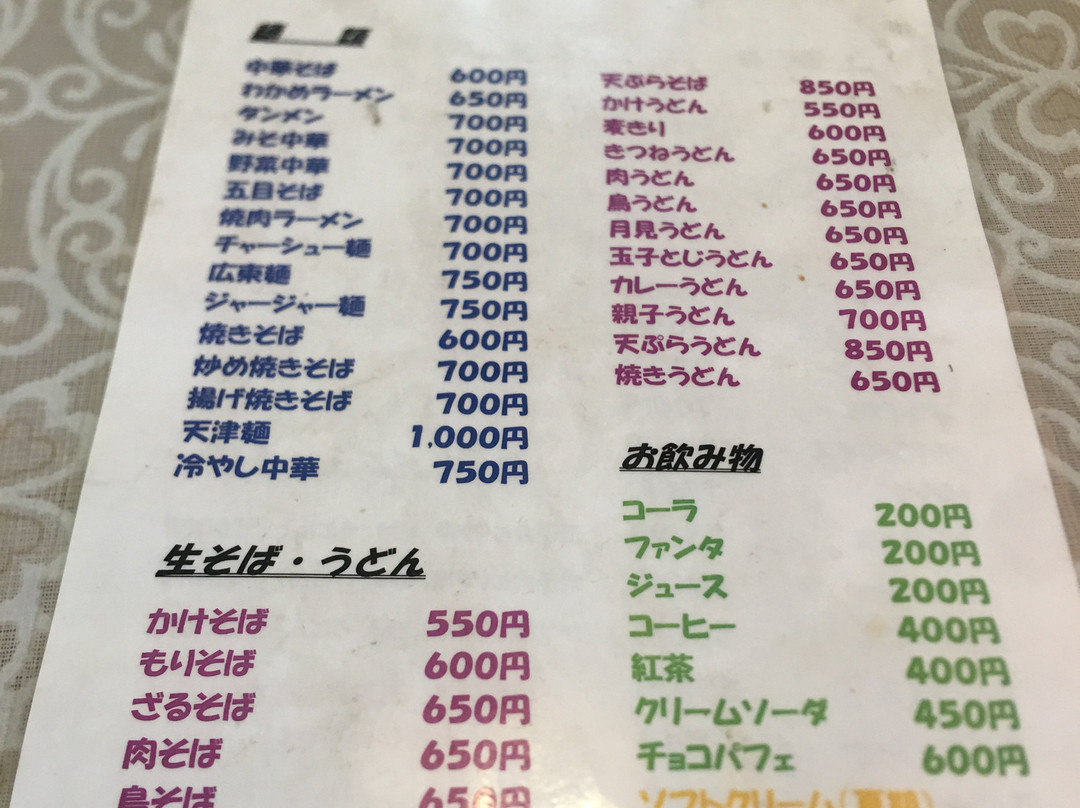 麺 類
中華そば 600円
わかめラーメン 650円
タンメン 700円
みそ中華 700円
野菜中華 700円
五目そば 700円
焼肉ラーメン 700円
チャーシュー麺 700円
広東麺 750円
ジャージャー麺 750円
焼きそば 600円
炒め焼きそば 700円
揚げ焼きそば 700円
天津麺 1,000円
冷やし中華 750円
生そば・うどん
かけそば 550円
もりそば 600円
ざるそば 650円
肉そば 650円
鳥そば 650円
天ぷらそば 850円
かけうどん 550円
麦きり 600円
きつねうどん 650円
肉うどん 650円
鳥うどん 650円
月見うどん 650円
玉子とじうどん 650円
カレーうどん 650円
親子うどん 700円
天ぷらうどん 850円
焼きうどん 650円
お飲み物
コーラ 200円
ファンタ 200円
ジュース 200円
コーヒー 400円
紅茶 400円
クリームソーダ 450円
チョコパフェ 600円
ソフトクリーム(夏期)